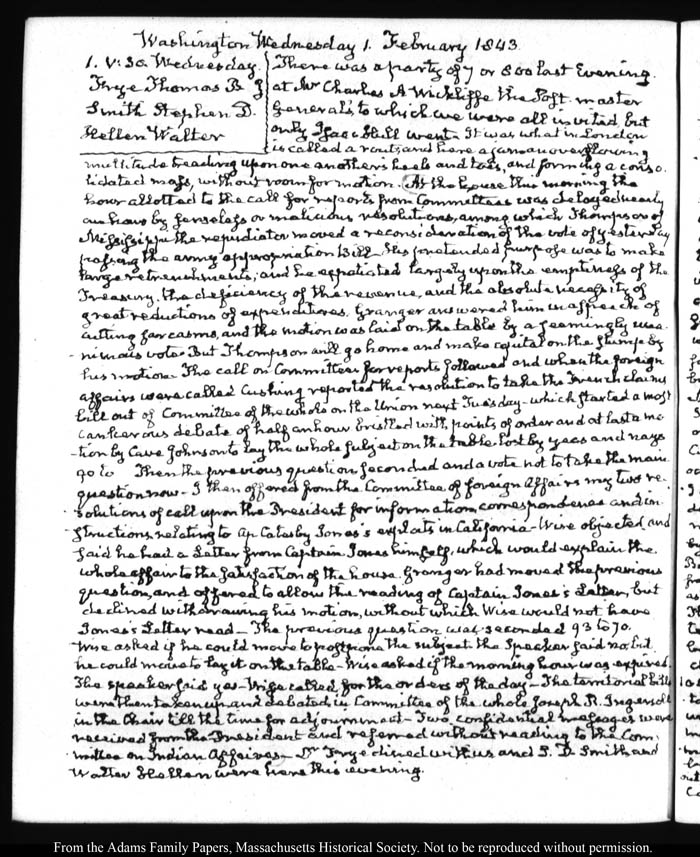 Washington Wednesday 1. February 1843.
1. V: 30. Wednesday.
Frye Thomas B. J
Smith Stephen D.
Hellen Walter
There was a party of 7 or 800 last Evening
at Mr Charles A Wickliffe the Post-master
General's to which we were all invited but
only Isaac Hull went. It was what in London
is called a rout; and here a jam an overflowing
multitude treading upon one another's heels and toes, and forming a conso-
lidated mass, without room for motion. At the house this morning the
hour allotted to the call for reports from Committees was delayed nearly
an hour by senseless or malicious resolutions, among which Thompson of
Mississippi the repudiator moved a reconsideration of the vote of yesterday
passing the army appropriation Bill. His pretended purpose was to make
large retrenchments; and he expatiated largely upon the emptiness of the
Treasury. the deficiency of the revenue, and the absolute necessity of
great reductions of expenditures. Granger answered him in a speech of
cutting sarcasms, and the motion was laid on the table by a seemingly una-
nimous vote. But Thompson will go home and make capital on the stump by
his motion. The call on Committees for reports followed and when the foreign
affairs were called Cushing reported the resolution to take the French claims
bill out of Committee of the whole on the Union next Tuesday - which started a most
cankerous debate of half an hour bristled with points of order and at last a mo-
tion by Cave Johnson to lay the whole subject on the table. lost by yeas and nays
90 to Then the previous question seconded and a vote not to take the main
question now - I then offered from the Committee of foreign Affairs my two re-
solutions of call upon the President for information, correspondence and in-
structions, relating to Ap Catesby Jones's exploits in California - Wise objected, and
said he had a Letter from Captain Jones himself, which would explain the
whole affair to the satisfaction of the house. Granger had moved the previous
question, and offered to allow the reading of Captain Jones's Letter, but
declined withdrawing his motion, without which Wise would not have
Jones's Letter read - The previous question was seconded 93 to 70.
Wise asked if he could move to postpone the subject. the Speaker said no, but
he could move to lay it on the table - Wise asked if the morning hour was expired.
The speaker said yes - Wise called for the orders of the day - The territorial bills
were then taken up and debated in Committee of the whole Joseph R. Ingersoll
in the Chair till the time for adjournment - Two confidential messages were
received from the President and referred without reading to the Com-
mittee on Indian Affairs - Dr Frye dined with us and S. D. Smith and
Walter Hellen were here this evening.
From the Adams Family Papers, Massachusetts Historical Society. Not to be reproduced without permission.